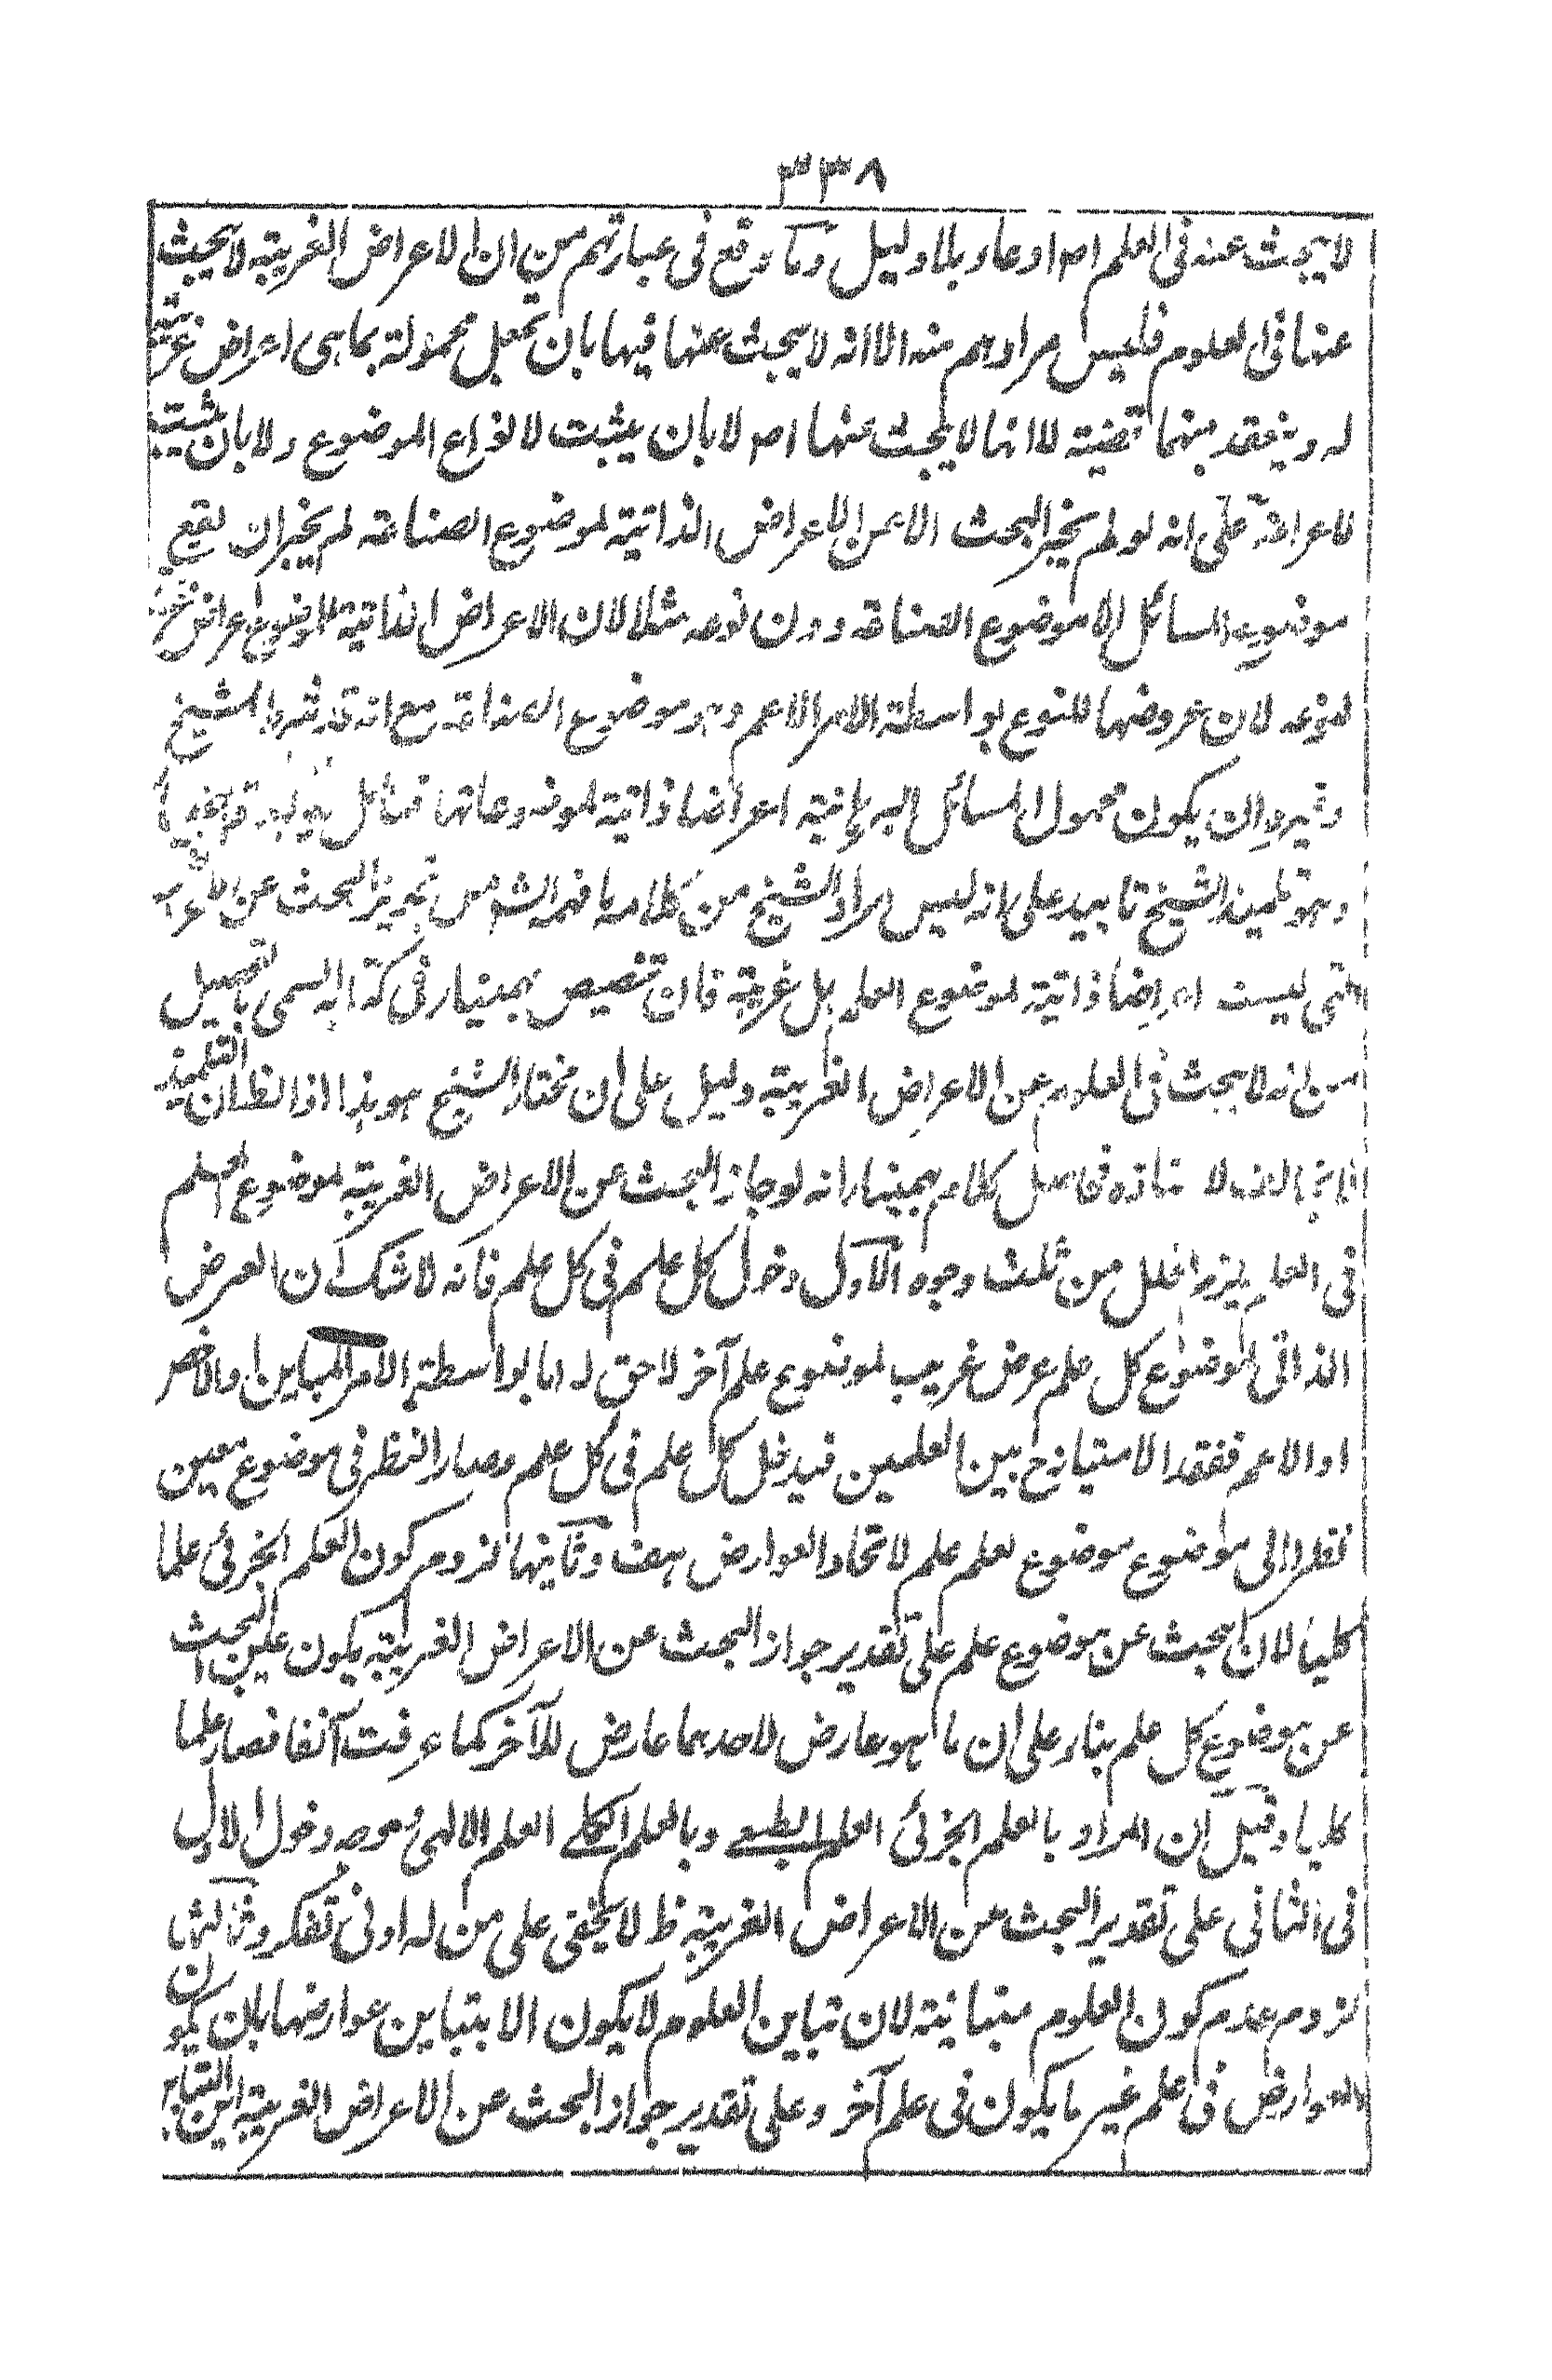 ٣٣٨
لا يبحث عنه فى العلم اصلا دعاو بلا دليل وما وقع فى عبارتهم من ان الاعراض الغريبة لا يبحث
عنها فى العلوم فليس مرادهم منه الا انه لا يبحث عنها فيها بان تجعل محمولة بما هى اعراض غريبة
له وينعقد منهما قضية لا انها لا يبحث عنها اصلا بان يثبت لانواع الموضوع ولا بان يثبت
لاعراضه على انه لو لم يجز البحث الا عن الاعراض الذاتية لموضوع الصناعة لم يجز ان يقع
موضوع المسائل الا موضوع الصناعة دون نوعه مثلا لان الاعراض الذاتية للموضوع اعراض غريبة
لنوعه لان عروضها للنوع بواسطة الامر الاعم وهو موضوع الصناعة مع انه قد شرط الشيخ
وغيره ان يكون محمول المسائل البرهانية اعراضا ذاتية لموضوعاتها فتأمل
وهو تلميذ الشيخ تاييد على انه ليس مراد الشيخ من كلامه ما فهمه الش من تجويز البحث عن الاعراض
التى ليست اعراضا ذاتية لموضوع العلم بل غريبة فان تخصيص بهمنيار فى كتابه المسمى بالتحصيل
من انه لا يبحث فى العلوم عن الاعراض الغريبة دليل على ان مختار الشيخ هو هذا اذ الظ ان التلميذ
لا يخالف لاستاذه فحاصل كلام بهمنيار انه لو جاز البحث عن الاعراض الغريبة لموضوع العلم
فى العلم يلزم الخلل من ثلث وجوه الاول دخول كل علم فى كل علم فانه لا شك ان العرض
الذاتى لموضوع كل علم عرض غريب لموضوع علم آخر لاحق له اما بواسطة الامر المباين او الاخص
او الاعم ففقد الامتياز ح بين العلمين فيدخل كل علم فى كل علم وصار النظر فى موضوع معين
نظرا الى موضوع موضوع لعلم علم لاتحاد العوارض هف وثانيها لزوم كون العلم الجزئى علما
كليا لان البحث عن موضوع علم على تقدير جواز البحث عن الاعراض الغريبة يكون عين البحث
عن موضوع كل علم بناء على ان ما هو عارض لاحدهما عارض للآخر كما عرفت آنفا فصار علما
كليا وقيل ان المراد بالعلم الجزئى العلم الطبعى وبالعلم الكلى العلم الالهى وصح دخول الاول
فى الثانى على تقدير البحث عن الاعراض الغريبة ظ لا يخفى على من له ادنى تفكر وثالثها
لزوم عدم كون العلوم متبائنة لان تباين العلوم لا يكون الا بتباين عوارضها بان يكون
العوارض فى علم غير ما يكون فى علم آخر وعلى تقدير جواز البحث عن الاعراض الغريبة اين التباين